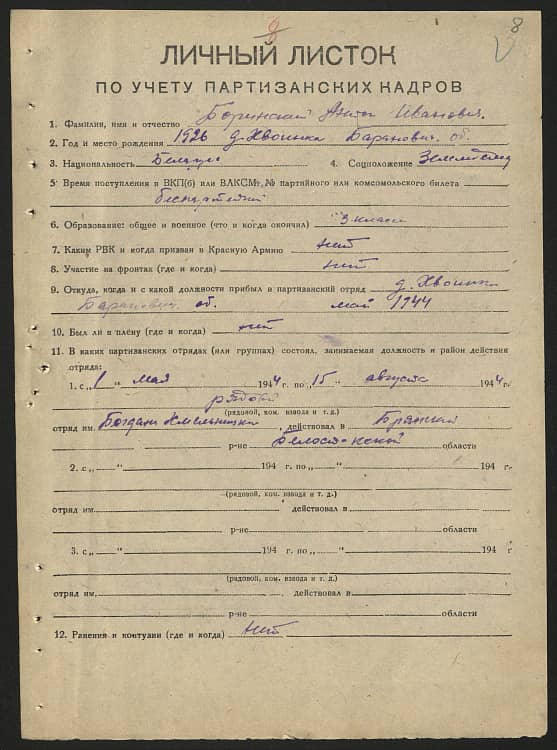 8
ЛИЧНЫЙ ЛИСТОК
ПО УЧЕТУ ПАРТИЗАНСКИХ КАДРОВ
1. Фамилия, имя и отчество Иванович.
2. Год и место рождения 1926 д. Хвоинка Баранович. об.
3. Национальность 4. Соцположение
5 Время поступления в ВКП(б) или ВЛКСМ, № партийного или комсомольского билета
беспартейный
6. Образование: общее и военное (что и когда окончил) 3 класса
7. Каким РВК и когда призван в Красную Армию нит
8. Участие на фронтах (где и когда) нит
9. Откуда, когда и с какой должности прибыл в партизанский отряд д. Хвоинка
Баранович. об. май 1944
10. Был ли в плену (где и когда) нит
11. В каких партизанских отрядах (или группах) состоял, занимаемая должность и район действия
отряда:
1. с „1“ мая 1944 г. по „15“ августа 1944 г.
рядовой
(рядовой, ком. взвода и т. д.)
отряд им. Богдана Хмельницки, действовал в
р-не области
2. с „ “ 194 г. по „ “ 194 г.
(рядовой, ком. взвода и т. д.)
отряд им. действовал в
р-не области
3. с „ “ 194 г. по „ “ 194 г
(рядовой, ком. взвода и т. д.)
отряд им. действовал в
р-не области
12. Ранения и контузии (где и когда) нит